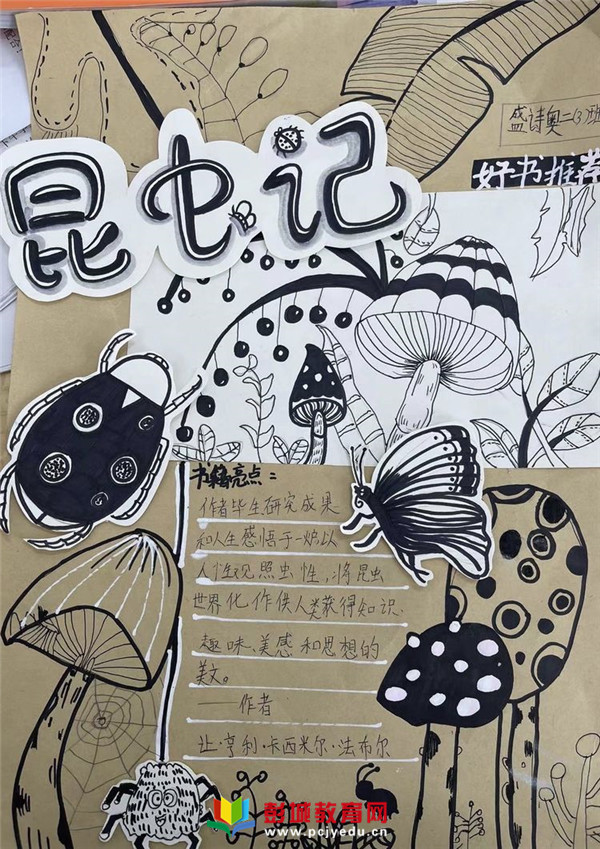 盛诗奥二(3)班
好书推荐
昆虫记
书籍亮点:
作者毕生研究成果
和人生感悟于一炉以
人性观照虫性,将昆虫
世界化作供人类获得知识、
趣味、美感和思想的
美文。
——作者
让·亨利·卡西米尔·法布尔
彭城教育网
www.pcjyedu.cn